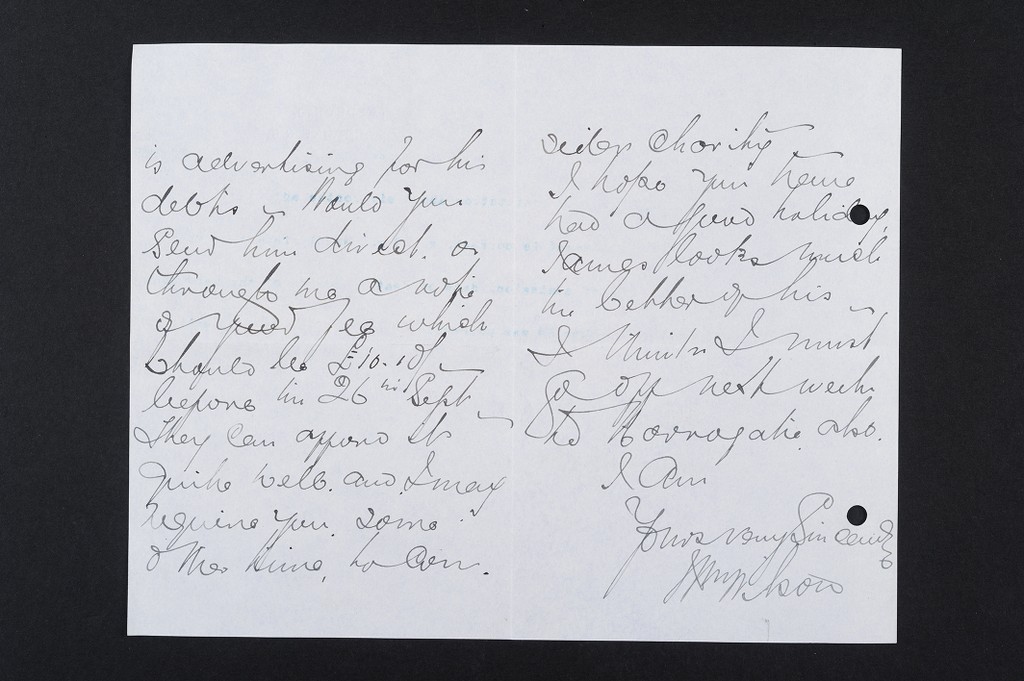 is advertising for his
debts - Would you
Send him direct. or
through me a note
of your fee which
should be £10.10/-
before the 26th Sept -
They can afford it
quite well. and I may
require you. some
other time, to
charity -
I hope you have
had a good holiday.
James looks much
the better of his -
I think I must
go off next week
to Harrogate also.
I am
Yours very Sincerely
Wilson